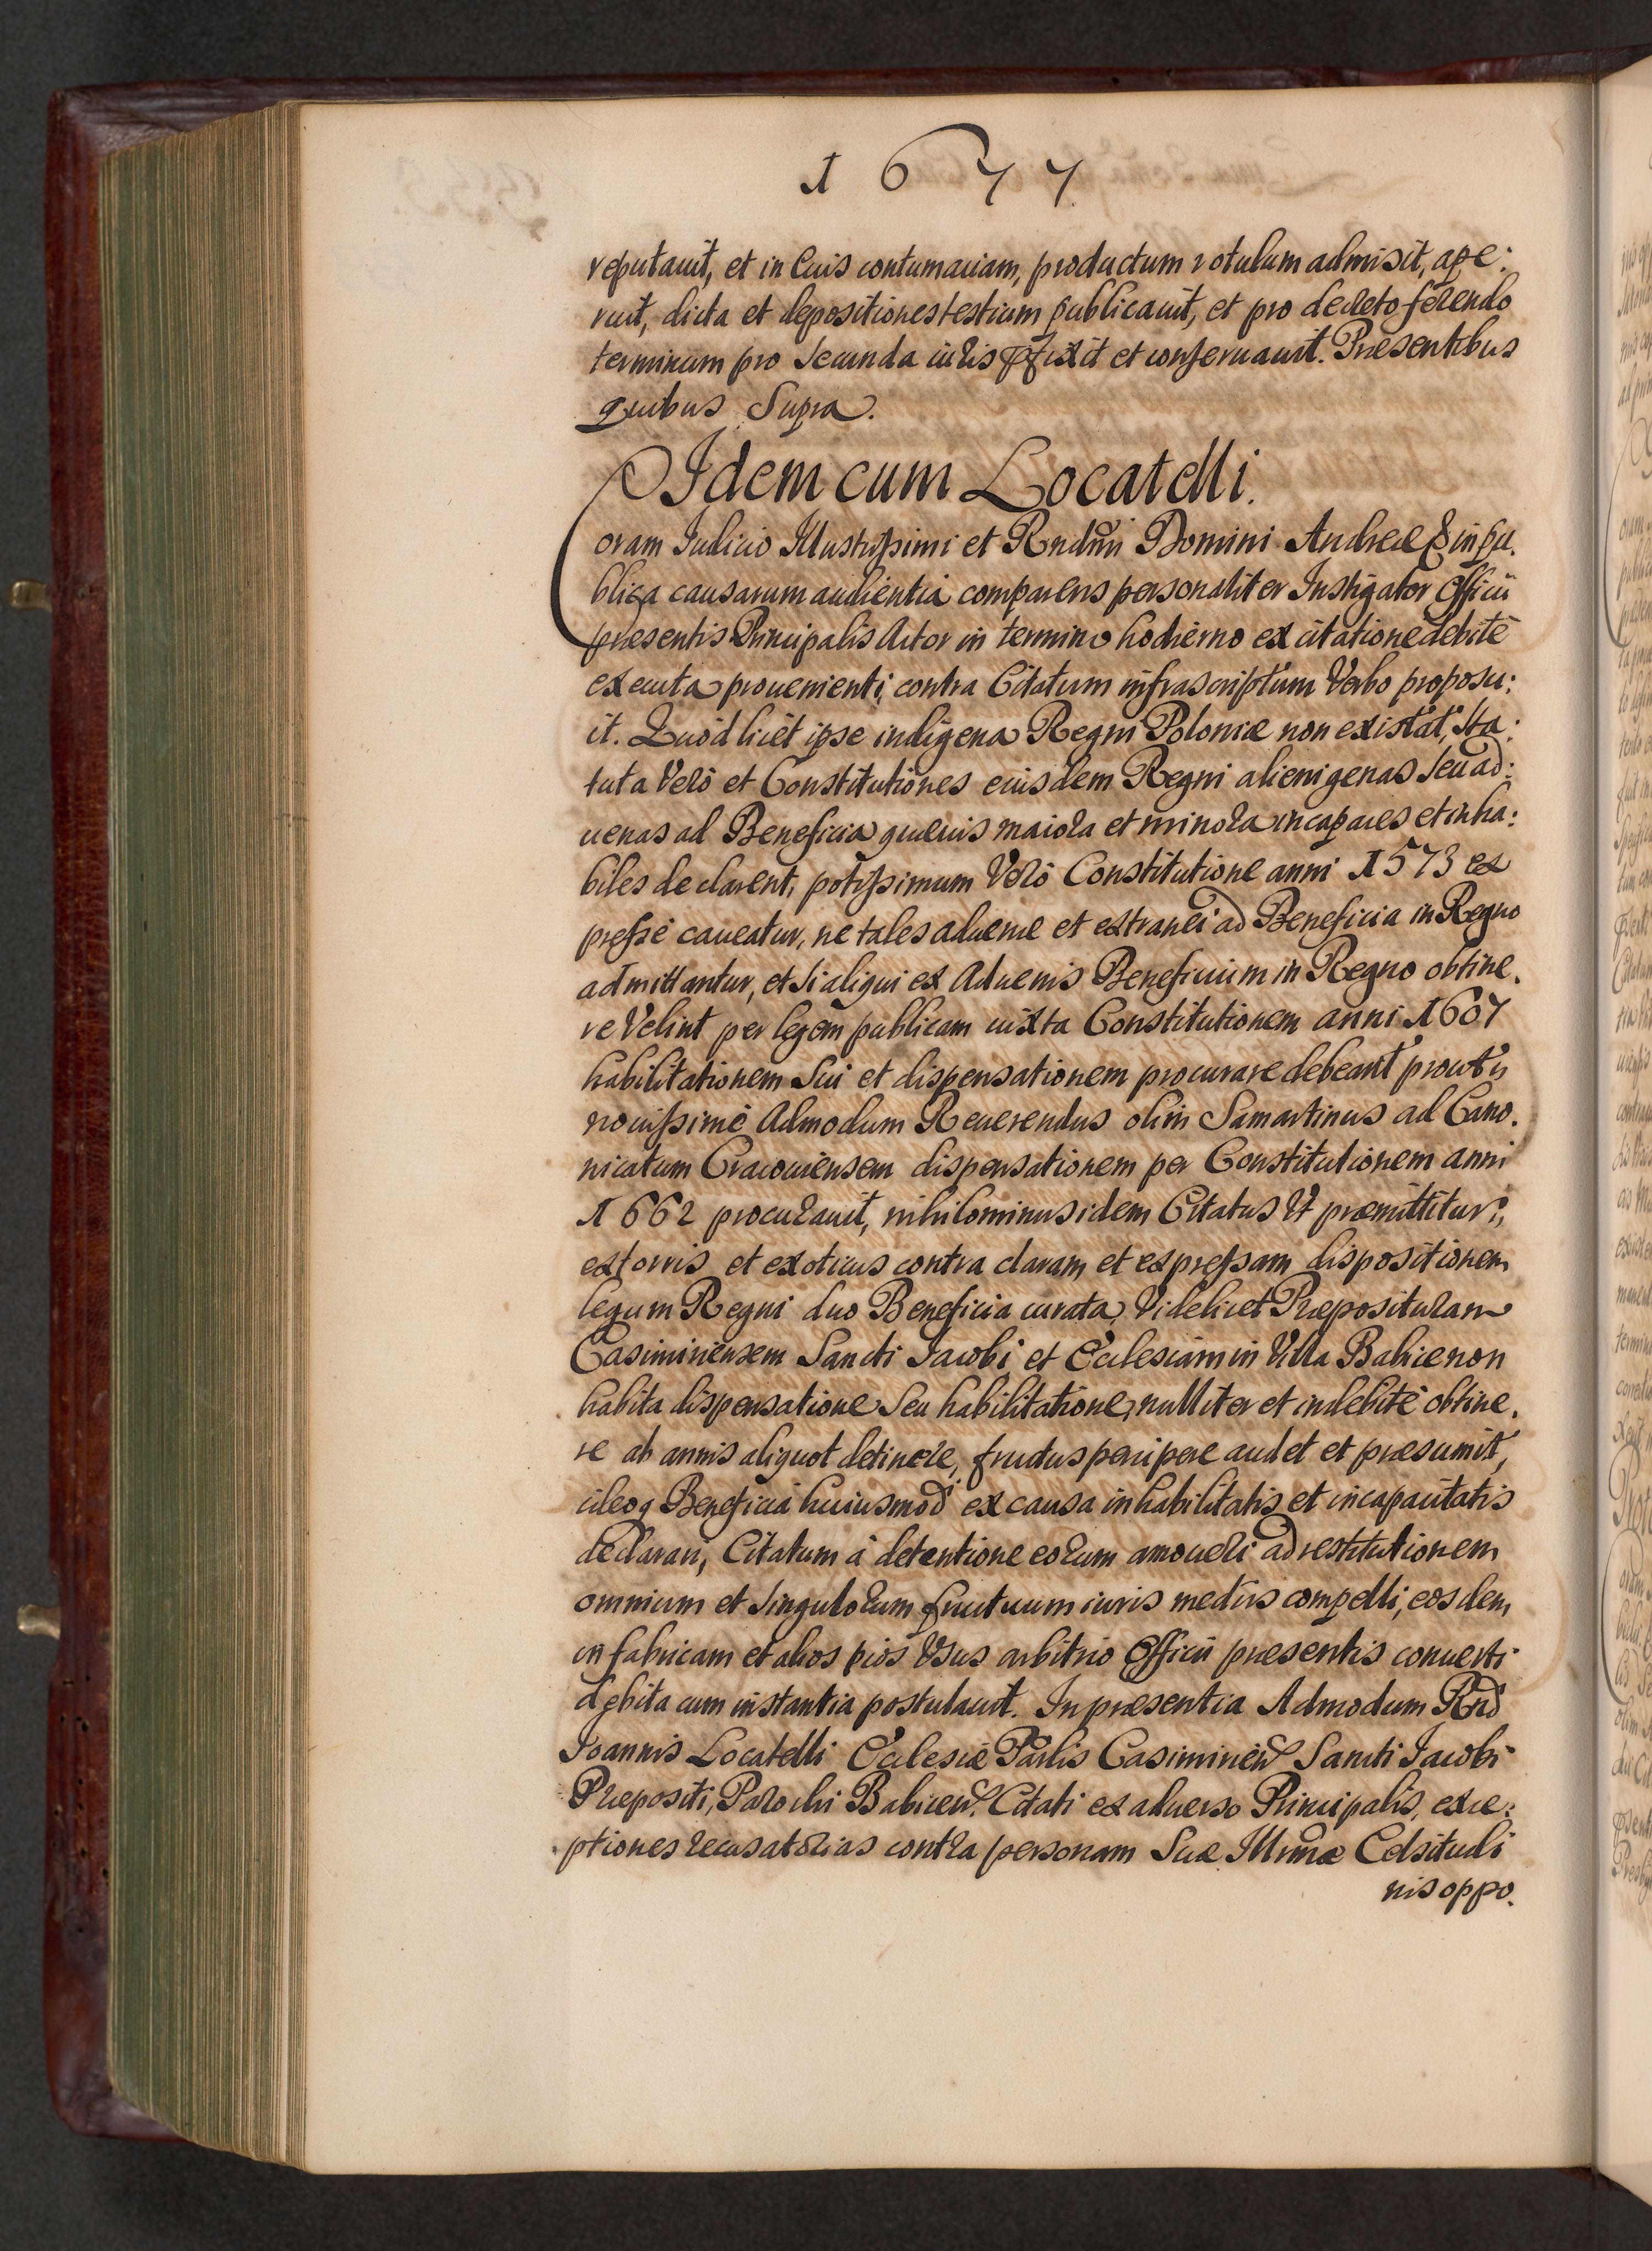 1677
reputauit, et in euis contumaciam, productum rotulum admisit, ape:
ruit, dicta et depositiones testium publicauit, et pro decreto ferendo
terminum pro secunda iuris pfixit et conseruauit. Præsentibus
quibus Supra.
Idem cum Locatelli.
Coram Iudicio Illustrissimi et Rndmi Domini Andreæ & in pu.
blica causarum audientia comparens personaliter Instigator Officii
præsentis Principalis Actor in termino hodierno ex citatione debitè
executa prouenienti, contra Citatum infrascriptum Verbo proposu:
it. Quòd licèt ipse indigena Regni Poloniæ non existat, Sta:
tuta Verò et Constitutiones eiusdem Regni alienigenas seu ad:
uenas ad Beneficia quæuis maiora et minora incapaces et inha:
biles declarent, potissimum Verò Constitutione anni 1573 ex
pressè caueatur, ne tales aduenæ et extranei ad Beneficia in Regno
admittantur, et si aliqui ex Aduenis Beneficium in Regno obtine.
re Velint per legem publicam iuxta Constitutionem anni 1607
habilitationem Sui et dispensationem procurare debeant prout is
nouissimè Admodum Reuerendus olim Samartinus ad Cano.
nicatum Cracouiensem dispensationem per Constitutionem anni
1662 procurauit, nihilominus idem Citatus Ut præmittitur,
extorris et exoticus contra claram et expressam dispositionem
legum Regni duo Beneficia curata, Videlicet Præposituram
Casimiriensem Sancti Iacobi et Ecclesiam in Villa Babice non
habita dispensatione Seu habilitatione, nulliter et indebitè obtine.
re ab annis aliquot detinere, fructus percipere audet et præsumit,
ideoq Beneficia huiusmod ex causa inhabilitatis et incapacitatis
declarari, Citatum à detentione eorum amoueri ad restitutionem
omnium et singulorum fructuum iuris mediis compelli, eosdem
in fabricam et alios pios Vsus arbitrio Officii præsentis conuerti
debita cum instantia postulauit. In præsentia Admodum Rnd
Ioannis Locatelli Ecclesiæ Parlis Casimirien Sancti Iacobi
Præpositi, Parochi Babicen. Citati ex aduerso Principalis, exce:
ptiones recusatorias contra personam Suæ Illmæ Celsitudi
nis oppo.